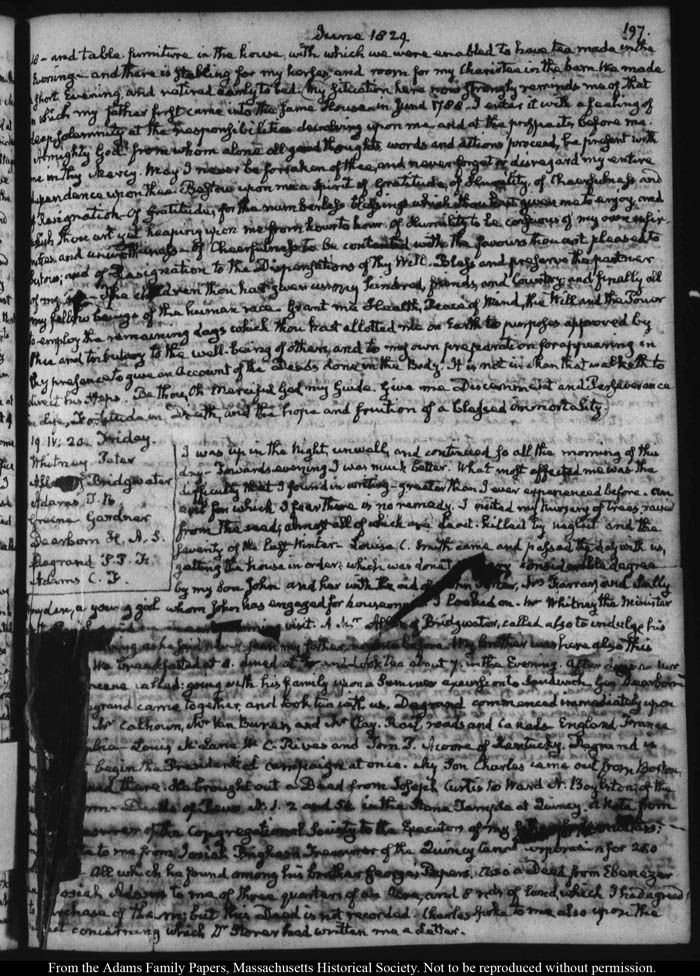 June 1829.
197.
and table furniture in the house, with which we were enabled to have tea made in the
Evening and there is stabling for my horses, and room for my Chariotee in the barn. We made
short Evening and retired early to bed. My situation here now strongly reminds me of that
which my father first came into the same House in June 1788. I enter it with a feeling of
deep solemnity at the responsibilities devolving upon me and at the prospects before me.
Almighty God! from whom alone all good thoughts words and actions proceed, be present with
me in thy Mercy. May I never be forsaken of thee, and never forget or disregard my entire
dependence upon thee. Bestow upon me a spirit of Gratitude, of Humility, of Cheerfulness and
of Resignation. Of Gratitude, for the numberless blessings which thou hast given me to enjoy, and
which thou art yet heaping upon me from hour to hour. Of Humility to be conscious of my own infir-
mities, and unworthiness. of Cheerfulness to be contented with the favours thou art pleased to
bestow; and of Resignation to the Dispensations of thy Will. Bless and preserve the partner
of my The children thou hast given us, my kindred, friends, and Country, and finally all
my fellow beings of the human race. Grant me Health, Peace of Mind, the Will and the Power
to employ the remaining days which thou hast allotted me on Earth to purposes approved by
thee and tributary to the well being of others, and to my own preparation for appearing in
thy presence to give an account of the Deeds done in the Body. It is not in man that walketh to
direct his steps. Be thou, Oh Merciful God, my Guide. Give me Discernment and Perseverance
in Life, Fortitude in Death, and the hope and fruition of a blessed immortality.
19. IV. 20. Friday.
Whitney Peter
Bridgwater
Adams T. B.
Greene Gardner
Dearborn H. A. S.
Degrand P. P. F.
Adams C. F.
I was up in the Night, unwell, and continued so all the morning of this
day. Towards evening I was much better. What most affected me was the
difficulty that I found in writing greater than I ever experienced before. An
evil for which I fear there is no remedy. I visited my Nursery of trees, raised
from the seed; almost all of which are dead. killed by neglect and the
severity of the last Winter. Louisa C. Smith came and passed the day with us,
getting the house in order; which was done to considerable degree
by my Son John and her with the aid of Mrs Farrar, and Sally
a young girl whom John has engaged for housemaid I looked on. Mr Whitney the Minister
visit. A Mr of Bridgwater, called also to indulge his
as he had never seen my father, before. My brother was here also this
We breakfasted at 8. dined at took tea about 7. in the Evening. After dinner Mr
Greene called: going with his family upon a Summer excursion to Sandwich. Genl Dearborn
came together, and took tea with us. Degrand commenced immediately upon
Mr Calhoun, Mr Van Buren, and Mr Clay. Rail roads and Canals. England, France
Louis McLane W. C. Rives and Tom P. Moore of Kentucky. Degrand is
begin the Presidential campaign at once. My Son Charles came out from Boston,
there. He brought out a Deed from Joseph Curtis to Ward N. Boylston, of the
Deeds of Pews N. 1. 2 and 56 in the Stone Temple at Quincy. A Note from
of the Congregational Society to the Executors of my
to me from Josiah Brigham Treasurer of the Quincy Canal Corporation for 250
All which he found among his brother George's Papers. Also a Deed from Ebenezer
Josiah Adams to me of three quarters of an Acre, and 8 rods of land, which I had agreed
purchase of them; but this Deed is not recorded. Charles spoke to me also upon the
concerning which Dr Storer had written me a Letter.
From the Adams Family Papers, Massachusetts Historical Society. Not to be reproduced without permission.